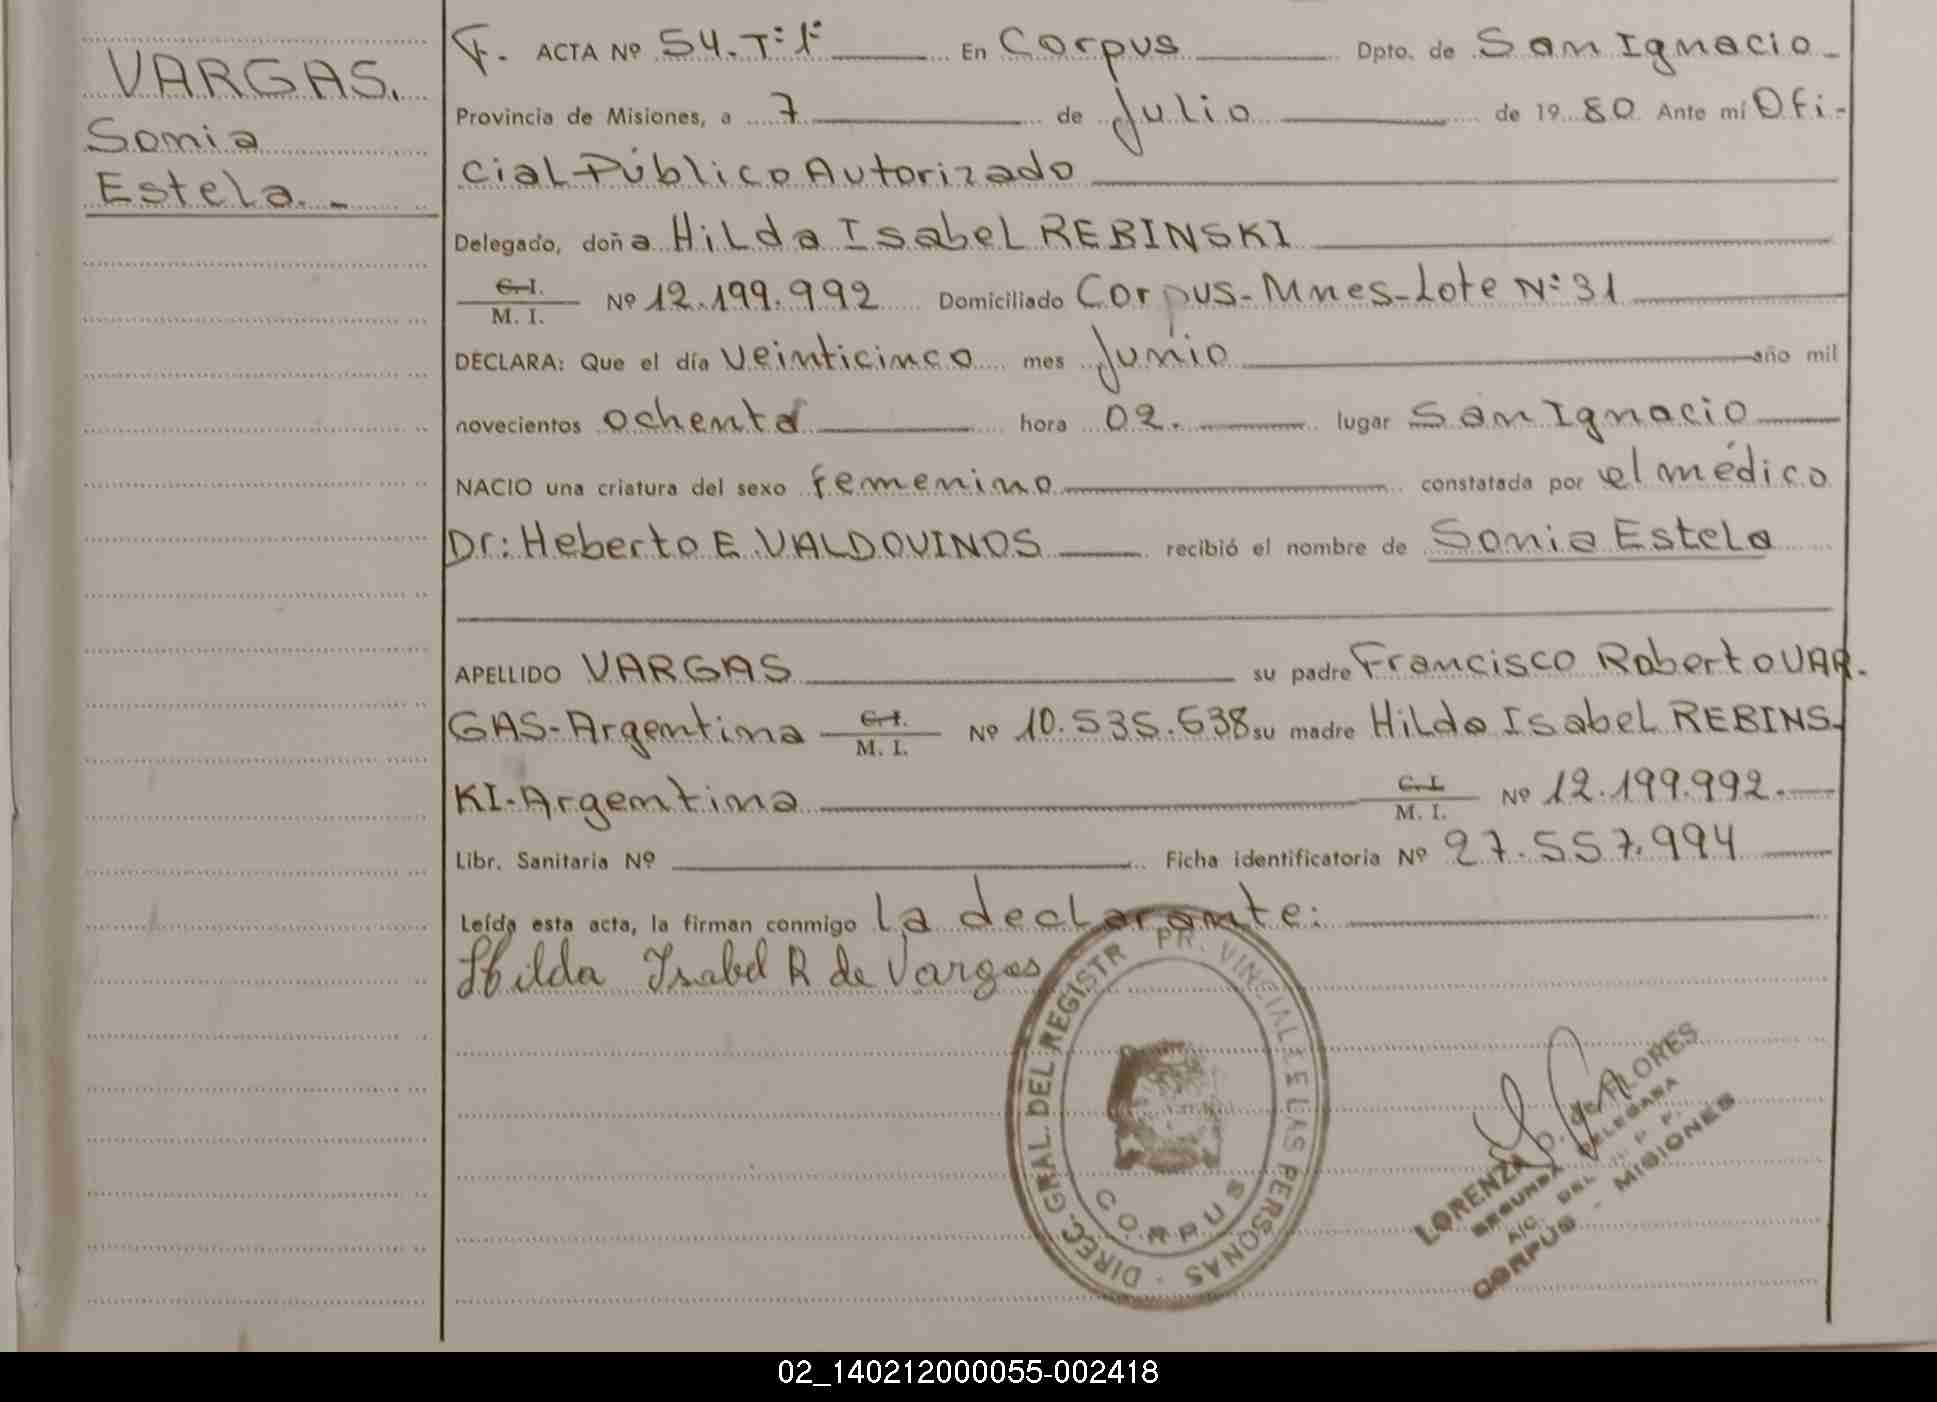 VARGAS.
Sonia
Estela.-
F. ACTA Nº 54.Tº1º En Corpus Dpto. de San Ignacio
Provincia de Misiones, a 7 de Julio de 1980 Ante mí Ofi-
cial Público Autorizado
Delegado, doña Hilda Isabel REBINSKI
C.I.
M. I. Nº 12.199.992 Domiciliado Corpus-Mnes-Lote Nº31
DECLARA: Que el día veinticinco mes Junio año mil
novecientos ochenta hora 02. lugar San Ignacio
NACIO una criatura del sexo femenino constatada por el médico
Dr: Heberto E VALDOVINOS recibió el nombre de Sonia Estela
APELLIDO VARGAS su padre Francisco Roberto VAR-
GAS-Argentina C.I. M. I. Nº 10.535.638 su madre Hilda Isabel REBINS-
KI-Argentina C.I. M. I. Nº 12.199.992.
Libr. Sanitaria Nº Ficha identificatoria Nº 27.557.994
Leída esta acta, la firman conmigo la declarante:
Hilda Isabel R de Vargas
DIREC. GRAL. DEL REGISTR PR. VINCIAL E LAS PERSONAS
CORPUS
LORENZA D. de FLORES
SEGUNDA DELEGADA
DEL
CORPUS - MISIONES
02_140212000055-002418